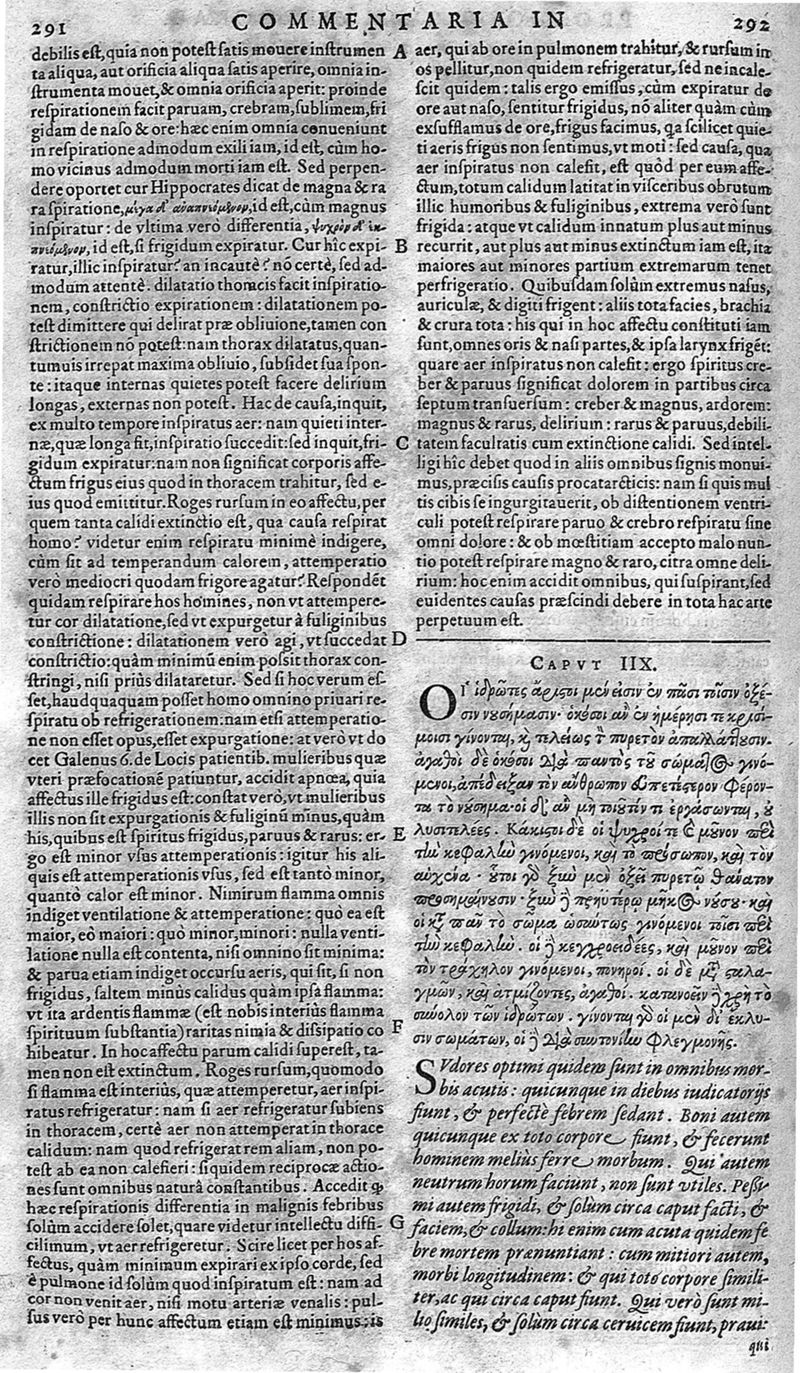 291 COMMENTARIA IN 292
debilis est, quia non potest satis mouere instrumen
ta aliqua, aut orificia aliqua satis aperire, omnia in-
strumenta mouet, & omnia orificia aperit: proinde
respirationem facit paruam, crebram, sublimem, fri
gidam de naso & ore: hæc enim omnia conueniunt
in respiratione admodum exili iam, id est, cùm ho-
mo vicinus admodum morti iam est. Sed perpen-
dere oportet cur Hippocrates dicat de magna & ra
ra spiratione, id est, cùm magnus
inspiratur: de vltima verò differentia,
id est, si frigidum expiratur. Cur hîc expi-
ratur, illic inspiratur? an incautè? nō certè, sed ad-
modum attentè. dilatatio thoracis facit inspiratio-
nem, constrictio expirationem: dilatationem po-
test dimittere qui delirat præ obliuione, tamen con
strictionem nō potest: nam thorax dilatatus, quan-
tumuis irrepat maxima obliuio, subsidet sua spon-
te: itaque internas quietes potest facere delirium
longas, externas non potest. Hac de causa, inquit,
ex multo tempore inspiratus aer: nam quieti inter-
næ, quæ longa fit, inspiratio succedit: sed inquit, fri-
gidum expiratur: nam non significat corporis affe-
ctum frigus eius quod in thoracem trahitur, sed e-
ius quod emittitur. Roges rursum in eo affectu, per
quem tanta calidi extinctio est, qua causa respirat
homo? videtur enim respiratu minimè indigere,
cùm sit ad temperandum calorem, attemperatio
verò mediocri quodam frigore agatur? Respondēt
quidam respirare hos homines, non vt attempere-
tur cor dilatatione, sed vt expurgetur à fuliginibus
constrictione: dilatationem verò agi, vt succedat
constrictio: quàm minimū enim possit thorax con-
stringi, nisi priùs dilataretur. Sed si hoc verum es-
set, haudquaquam posset homo omnino priuari re-
spiratu ob refrigerationem: nam etsi attemperatio-
ne non esset opus, esset expurgatione: at verò vt do
cet Galenus 6. de Locis patientib. mulieribus quæ
vteri præfocationē patiuntur, accidit apnœa, quia
affectus ille frigidus est: constat verò, vt mulieribus
illis non sit expurgationis & fuliginū minus, quàm
his, quibus est spiritus frigidus, paruus & rarus: er-
go est minor vsus attemperationis: igitur his ali-
quis est attemperationis vsus, sed est tantò minor,
quantò calor est minor. Nimirum flamma omnis
indiget ventilatione & attemperatione: quò ea est
maior, eò maiori: quò minor, minori: nulla venti-
latione nulla est contenta, nisi omnino sit minima:
& parua etiam indiget occursu aeris, qui sit, si non
frigidus, saltem minùs calidus quàm ipsa flamma:
vt ita ardentis flammæ (est nobis interiùs flamma
spirituum substantia) raritas nimia & dissipatio co
hibeatur. In hoc affectu parum calidi superest, ta-
men non est extinctum. Roges rursum, quomodo
si flamma est interiùs, quæ attemperetur, aer inspi-
ratus refrigeratur: nam si aer refrigeratur subiens
in thoracem, certè aer non attemperat in thorace
calidum: nam quod refrigerat rem aliam, non po-
test ab ea non calefieri: siquidem reciprocæ actio-
nes sunt omnibus naturâ constantibus. Accedit ꝙ
hæc respirationis differentia in malignis febribus
solùm accidere solet, quare videtur intellectu diffi-
cilimum, vt aer refrigeretur. Scire licet per hos af-
fectus, quàm minimum expirari ex ipso corde, sed
è pulmone id solùm quod inspiratum est: nam ad
cor non venit aer, nisi motu arteriæ venalis: pul-
sus verò per hunc affectum etiam est minimus: is
A
B
C
D
E
F
G
aer, qui ab ore in pulmonem trahitur, & rursum in
os pellitur, non quidem refrigeratur, sed ne incale-
scit quidem: talis ergo emissus, cùm expiratur de
ore aut naso, sentitur frigidus, nō aliter quàm cùm
exsufflamus de ore, frigus facimus, qa scilicet quie-
ti aeris frigus non sentimus, vt moti: sed causa, qua
aer inspiratus non calefit, est quòd per eum affe-
ctum, totum calidum latitat in visceribus obrutum
illic humoribus & fuliginibus, extrema verò sunt
frigida: atque vt calidum innatum plus aut minus
recurrit, aut plus aut minus extinctum iam est, ita
maiores aut minores partium extremarum tenet
perfrigeratio. Quibusdam solùm extremus nasus,
auriculæ, & digiti frigent: aliis tota facies, brachia
& crura tota: his qui in hoc affectu constituti iam
sunt, omnes oris & nasi partes, & ipsa larynx frigēt:
quare aer inspiratus non calefit: ergo spiritus cre-
ber & paruus significat dolorem in partibus circa
septum transuersum: creber & magnus, ardorem:
magnus & rarus, delirium: rarus & paruus, debili-
tatem facultatis cum extinctione calidi. Sed intel-
ligi hîc debet quod in aliis omnibus signis monui-
mus, præcisis causis procatarcticis: nam si quis mul
tis cibis se ingurgitauerit, ob distentionem ventri-
culi potest respirare paruo & crebro respiratu sine
omni dolore: & ob mœstitiam accepto malo nun-
tio potest respirare magno & raro, citra omne deli-
rium: hoc enim accidit omnibus, qui suspirant, sed
euidentes causas præscindi debere in tota hac arte
perpetuum est.
CAPVT IIX.
Οἱ ἱδρῶτες ἄριστοι μέν εἰσιν ἐν πᾶσι τοῖσιν ὀξέ-
σιν νουσήμασιν· ὁκόσοι ἂν ἐν ἡμέρῃσί τε κρισί-
μοισι γίνονται, καὶ τελείως τὸν πυρετὸν ἀπαλλάττουσιν.
ἀγαθοὶ δὲ ὁκόσοι διὰ παντὸς τοῦ σώματος γινό-
μενοι, ἀπέδειξαν τὸν ἄνθρωπον εὐπετέστερον φέρον-
τα τὸ νούσημα· οἱ δ' ἂν μὴ τουτέων τι ἐργάσωνται, οὐ
λυσιτελέες. Κάκιστοι δὲ οἱ ψυχροί τε καὶ μοῦνον περὶ
τὴν κεφαλὴν γινόμενοι, καὶ τὸ πρόσωπον, καὶ τὸν
αὐχένα· οὗτοι γὰρ ξὺν μὲν ὀξεῖ πυρετῷ θάνατον
προσημαίνουσιν· ξὺν δὲ πρηϋτέρῳ μῆκος νούσου· καὶ
οἱ κατὰ πᾶν τὸ σῶμα ὡσαύτως γινόμενοι τοῖσι περὶ
τὴν κεφαλήν. οἱ δὲ κεγχροειδέες, καὶ μοῦνον περὶ
τὸν τράχηλον γινόμενοι, πονηροί. οἱ δὲ μετὰ σταλα-
γμῶν, καὶ ἀτμίζοντες, ἀγαθοί. κατανοεῖν δὲ χρὴ τὸ
σύνολον τῶν ἱδρώτων. γίνονται γὰρ οἱ μὲν δι' ἔκλυ-
σιν σωμάτων, οἱ δὲ διὰ συντονίην φλεγμονῆς.
SVdores optimi quidem sunt in omnibus mor-
bis acutis: quicunque in diebus iudicatorijs
fiunt, & perfectè febrem sedant. Boni autem
quicunque ex toto corpore fiunt, & fecerunt
hominem meliùs ferre morbum. Qui autem
neutrum horum faciunt, non sunt vtiles. Pessi-
mi autem frigidi, & solùm circa caput facti, &
faciem, & collum: hi enim cum acuta quidem fe
bre mortem prænuntiant: cum mitiori autem,
morbi longitudinem: & qui toto corpore simili-
ter, ac qui circa caput fiunt. Qui verò sunt mi-
lio similes, & solùm circa ceruicem fiunt, praui:
qui